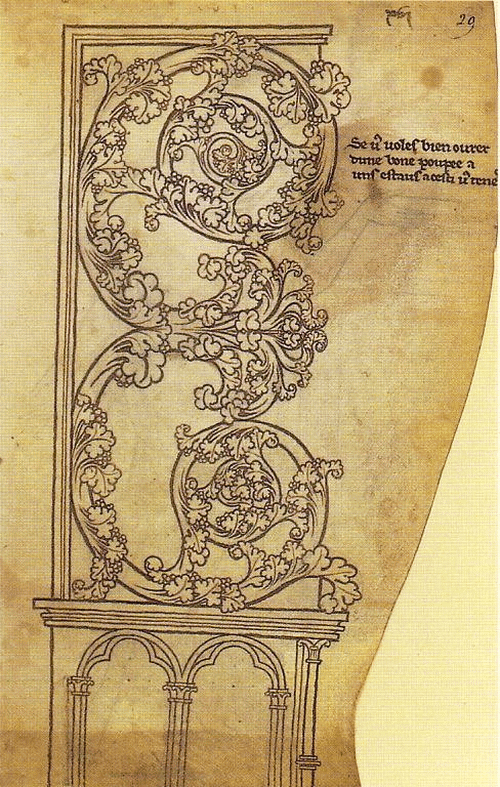 29
Se v̄ uoles bien ovrer
dune bone poupee a
uns estaus a cesti v̄ tene